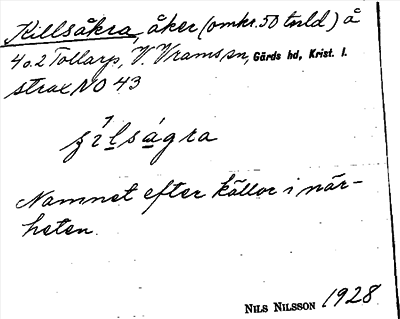 Killsåkra, åker (omkr. 50 tnld) å
4 o. 2 Tollarp, V. Vrams sn, Gärds hd, Krist. l.
strax NO 43
Namnet efter källor i när-
heten.
NILS NILSSON 1928